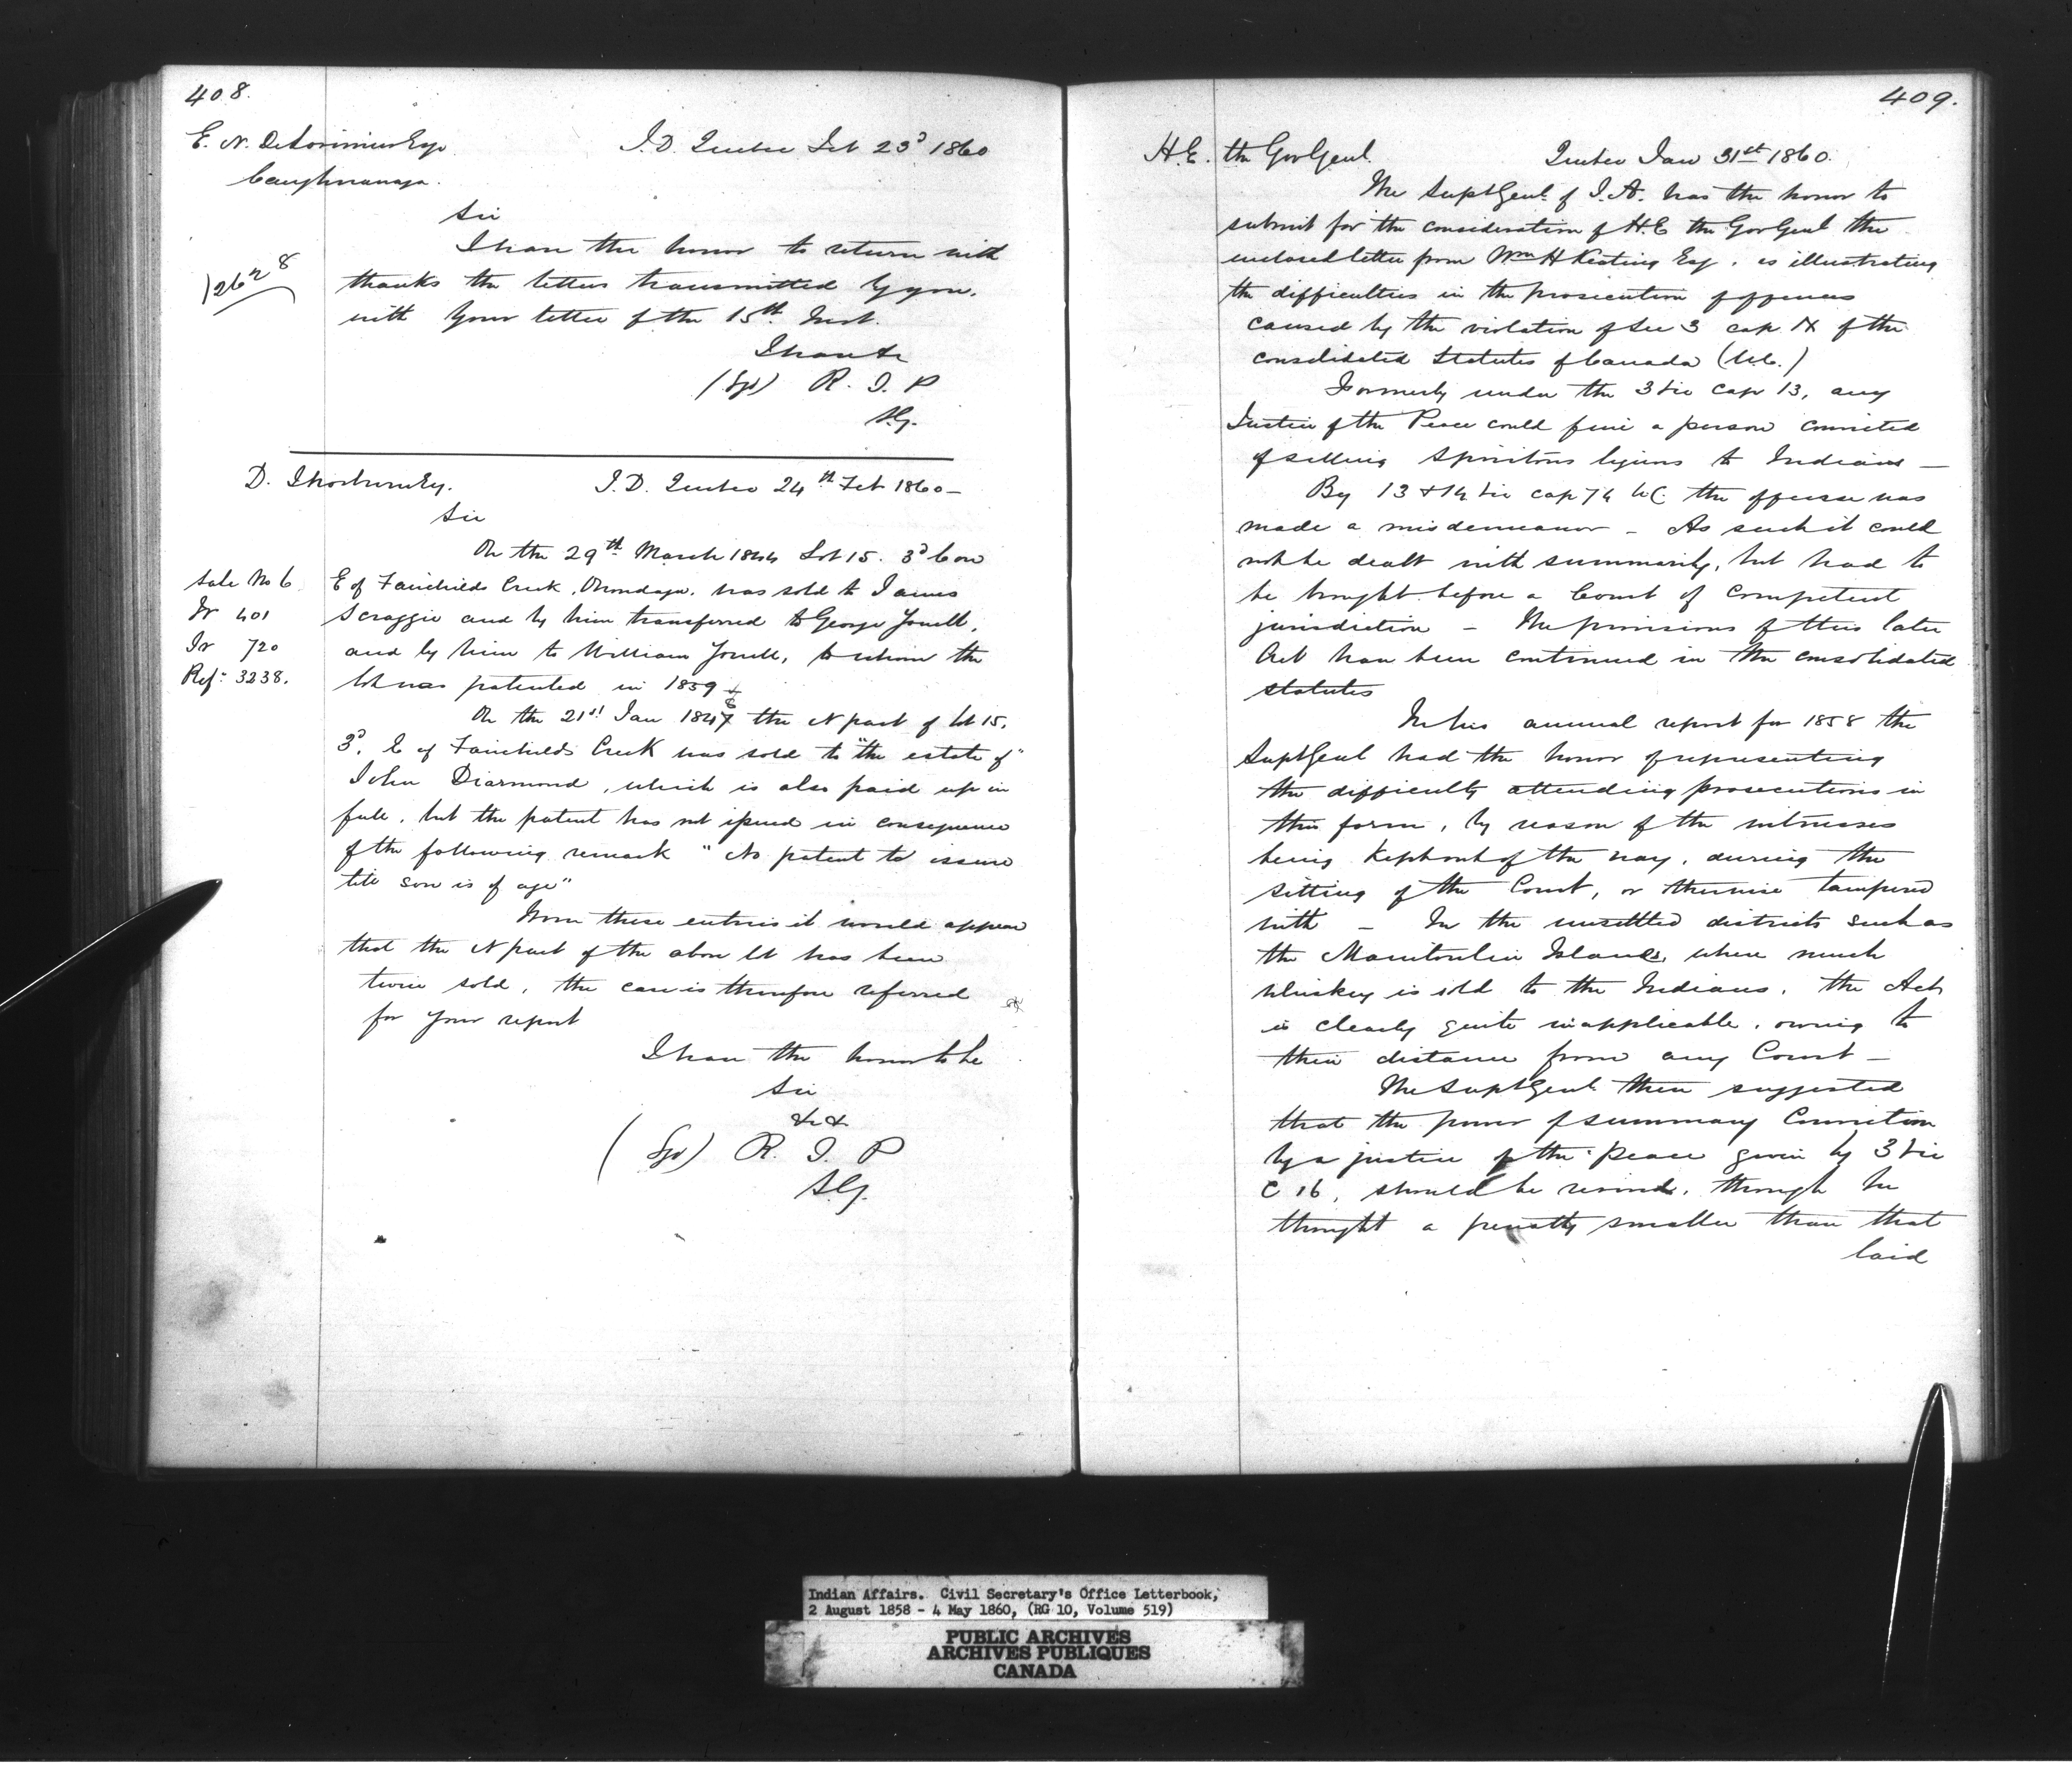 408.
E. N. DeLorimier Esqr
Caughnawaga.
I.D. Quebec Feb 23d 1860
Sir
I have the honor to return with
thanks the letters transmitted by you,
with your letter of the 15th Inst.
12628
I have &c
(Sgd) R. T. P
S.G.
D. Thorburn Esq.
I.D. Quebec 24th Feb 1860 -
Sir
On the 29th March 1844 Lot 15. 3d Con
E of Fairchilds Creek, Onondaga, was sold to James
Scroggie and by him transferred to George Youell,
and by him to William Youell, to whom the
lot was patented in 1859
Sale No 6
Fr 401
Ir 720
Ref: 3238.
On the 21st Jan 1847 the N part of lot 15.
3d. E of Fairchilds Creek was sold to "the estate of"
John Diarmond, which is also paid up in
full, but the patent has not issued in consequence
of the following remark "No patent to issue
till son is of age"
From these entries it would appear
that the N part of the above lot has been
twice sold, the case is therefore referred
for your report
I have the honor to be
Sir
&c &c
(Sgd) R. T. P
S.G.
409.
H.E. the Gov Genl.
Quebec Jan 31st 1860.
The Supt Genl of I.A. has the honor to
submit for the consideration of H.E the Gov Genl the
enclosed letter from Wm H Keating Esq. as illustrating
the difficulties in the prosecution of offences
caused by the violation of Sec 3 cap IX of the
consolidated Statutes of Canada (U.C.)
Formerly under the 3 Vic Cap 13, any
Justice of the Peace could fine a person convicted
of selling Spiritous liquors to Indians -
By 13 & 14 Vic cap 74 UC the offense was
made a misdemeanor - As such it could
not be dealt with summarily, but had to
be brought before a Court of Competent
jurisdiction - The provisions of this later
Act have been continued in the consolidated
statutes
In his annual report for 1858 the
Supt Genl had the honor of representing
the difficulty attending prosecutions in
this form, by reason of the witnesses
being kept out of the way, during the
sitting of the Court, or otherwise tampered
with - In the unsettled districts such as
the Manitoulin Islands, where much
whiskey is sold to the Indians, the Act
is clearly quite inapplicable, owing to
their distance from any Court -
The Supt Genl then suggested
that the power of summary Conviction
by a justice of the peace given by 3 Vic
C 16, should be revived, though he
thought a penalty smaller than that
laid
Indian Affairs. Civil Secretary's Office Letterbook,
2 August 1858 - 4 May 1860, (RG 10, Volume 519)
PUBLIC ARCHIVES
ARCHIVES PUBLIQUES
CANADA